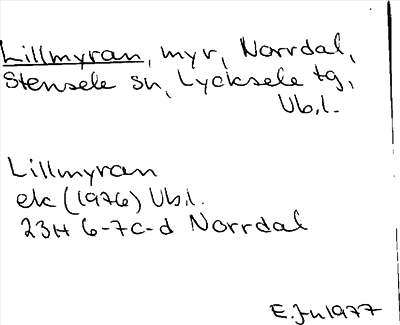 Lillmyran, myr, Norrdal,
Stensele sn, Lycksele tg,
Vb.l.
Lillmyran
ek (1976) Vb.l.
23H 6-7c-d Norrdal
E.Jn 1977